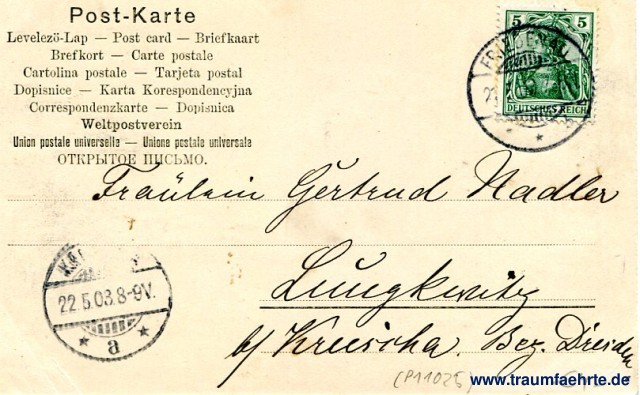 Post-Karte
Levelező-Lap — Post card — Briefkaart
Brefkort — Carte postale
Cartolina postale — Tarjeta postal
Dopisnice — Karta Korespondencyjna
Correspondenzkarte — Dopisnica
Weltpostverein
Union postale universelle — Unione postale universale
ОТКРЫТОЕ ПИСЬМО.
5 5
DEUTSCHES REICH
Fräulein Gertrud Nadler
Lungkwitz
b/ Kreischa. Bez. Dresden
22.5.03.8-9V.
a
(P11025)
www.traumfaehrte.de